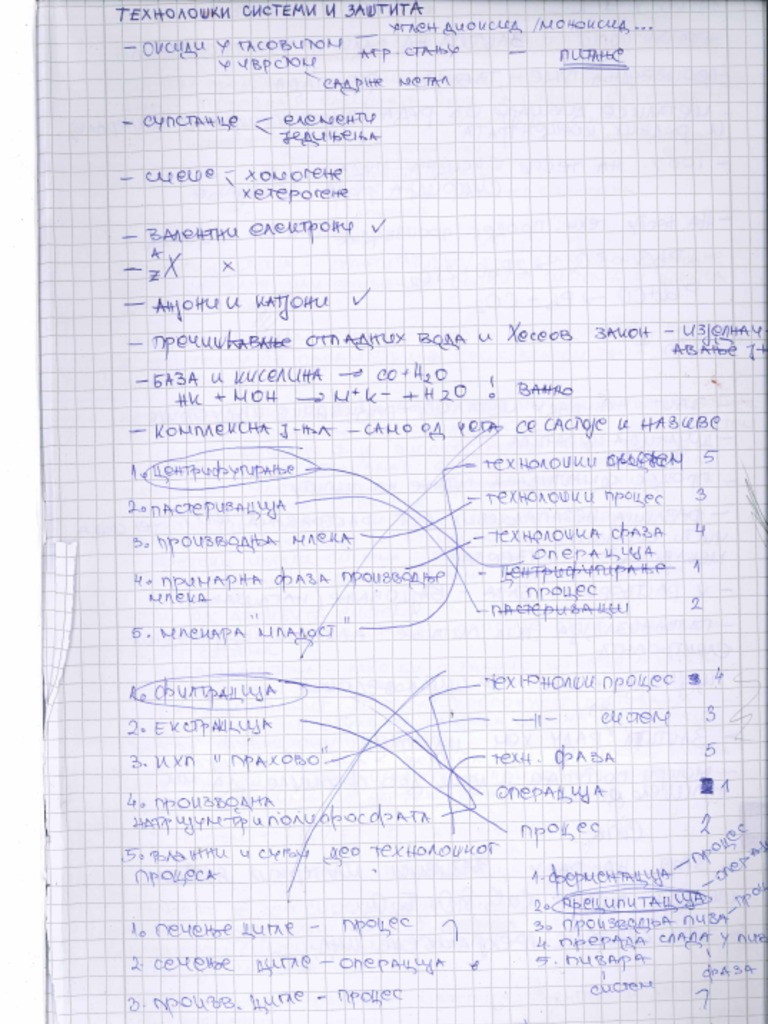 ТЕХНОЛОШКИ СИСТЕМИ И ЗАШТИТА
УГЛЕН ДИОКСИД / МОНОКСИД...
– ОКСИДИ У ГАСОВИТОМ АГР. СТАЊУ – ПИТАЊЕ
У ЧВРСТОМ
САДРЖЕ МЕТАЛ
– СУПСТАНЦЕ < ЕЛЕМЕНТИ
ЈЕДИЊЕЊА
– СМЕШЕ < ХОМОГЕНЕ
ХЕТЕРОГЕНЕ
– ВАЛЕНТНИ ЕЛЕКТРОНИ ✓
– A Z X x
– АНЈОНИ И КАТЈОНИ ✓
– ПРЕЧИШЋАВАЊЕ ОТПАДНИХ ВОДА И ХЕСЕОВ ЗАКОН – ИЗЈЕДНАЧ
АВАЊЕ Ј-
– БАЗА И КИСЕЛИНА → СО + H2O
HK + MOH → M+K- + H2O ! ВАЖНО
– КОМПЛЕКСНА Ј-ЊА – САМО ОД ЧЕГА СЕ САСТОЈЕ И НАЗИВЕ
1. ЦЕНТРИФУГИРАЊЕ
– ТЕХНОЛОШКИ СИСТЕМ 5
2. ПАСТЕРИЗАЦИЈА
– ТЕХНОЛОШКИ ПРОЦЕС 3
3. ПРОИЗВОДЊА МЛЕКА
– ТЕХНОЛОШКА ФАЗА 4
ОПЕРАЦИЈА
4. ПРИМАРНА ФАЗА ПРОИЗВОДЊЕ
МЛЕКА
– ЦЕНТРИФУГИРАЊЕ 1
ПРОЦЕС
– ПАСТЕРИЗАЦИ 2
5. МЛЕКАРА "МЛАДОСТ"
1. ФИЛТРАЦИЈА
– ТЕХНОЛОШКИ ПРОЦЕС 4
2. ЕКСТРАКЦИЈА
– –||– СИСТЕМ 3
3. ИХП "ПРАХОВО"
– ТЕХН. ФАЗА 5
ОПЕРАЦИЈА 1
4. ПРОИЗВОДЊА
НАТРИЈУМ-ТРИПОЛИФОСФАТА
ПРОЦЕС 2
5. ВЛАЖНИ И СУВИ ДЕО ТЕХНОЛОШКОГ
ПРОЦЕСА
1. ФЕРМЕНТАЦИЈА – ПРОЦЕС
2. ПРЕЦИПИТАЦИЈА – ОПЕРАЦ
3. ПРОИЗВОДЊА ПИВА – ПРО
4. ПРЕРАДА СЛАДА У ПИВ
ФАЗА
5. ПИВАРА
СИСТЕМ
1. ПЕЧЕЊЕ ЦИГЛЕ – ПРОЦЕС
2. СЕЧЕЊЕ ЦИГЛЕ – ОПЕРАЦИЈА
3. ПРОИЗВ. ЦИГЛЕ – ПРОЦЕС